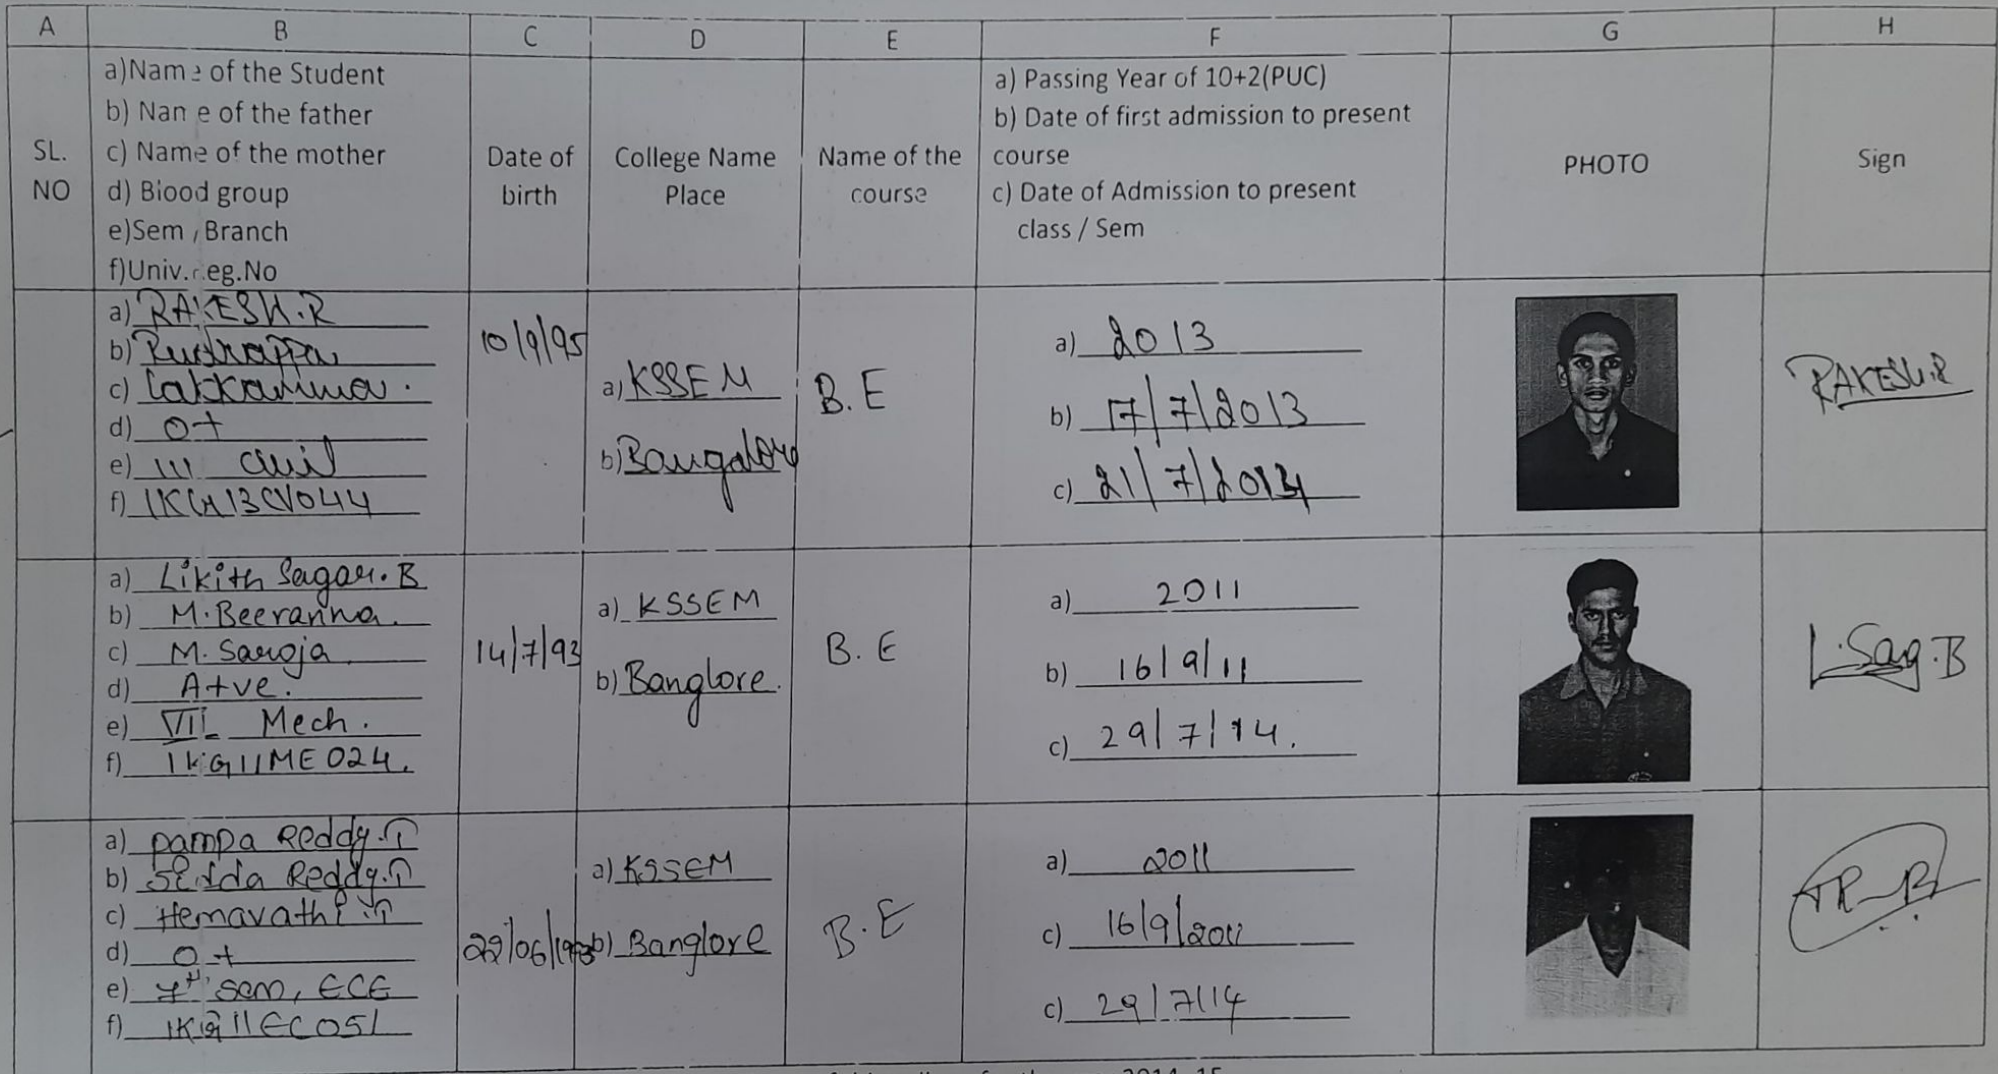 A B C D E F G H
SL. NO
a)Name of the Student
b) Name of the father
c) Name of the mother
d) Blood group
e)Sem / Branch
f)Univ.reg.No
Date of
birth
College Name
Place
Name of the
course
a) Passing Year of 10+2(PUC)
b) Date of first admission to present
course
c) Date of Admission to present
class / Sem
PHOTO
Sign
a) RAKESH.R
b) Rudrappa
c) Lakkamma.
d) O+
e) III Civil
f) 1KG13CV044
10/9/95
a) KSSEM
b) Bangalore
B.E
a) 2013
b) 17/7/2013
c) 21/7/2014
RAKESH.R
a) Likith Sagar.B
b) M.Beeranna.
c) M.Saroja
d) A+ve.
e) VII Mech.
f) 1KG11ME024.
14/7/93
a) KSSEM
b) Banglore.
B.E
a) 2011
b) 16/9/11
c) 29/7/14.
L.Sag.B
a) pampa Reddy.T
b) Reddy.T
c) Hemavathi.T
d) O+
e) 7th sem, ECE
f) 1KG11EC051
22/06/1993
a) KSSEM
b) Banglore
B.E
a) 2011
c) 16/9/2011
c) 29/7/14
2014-15